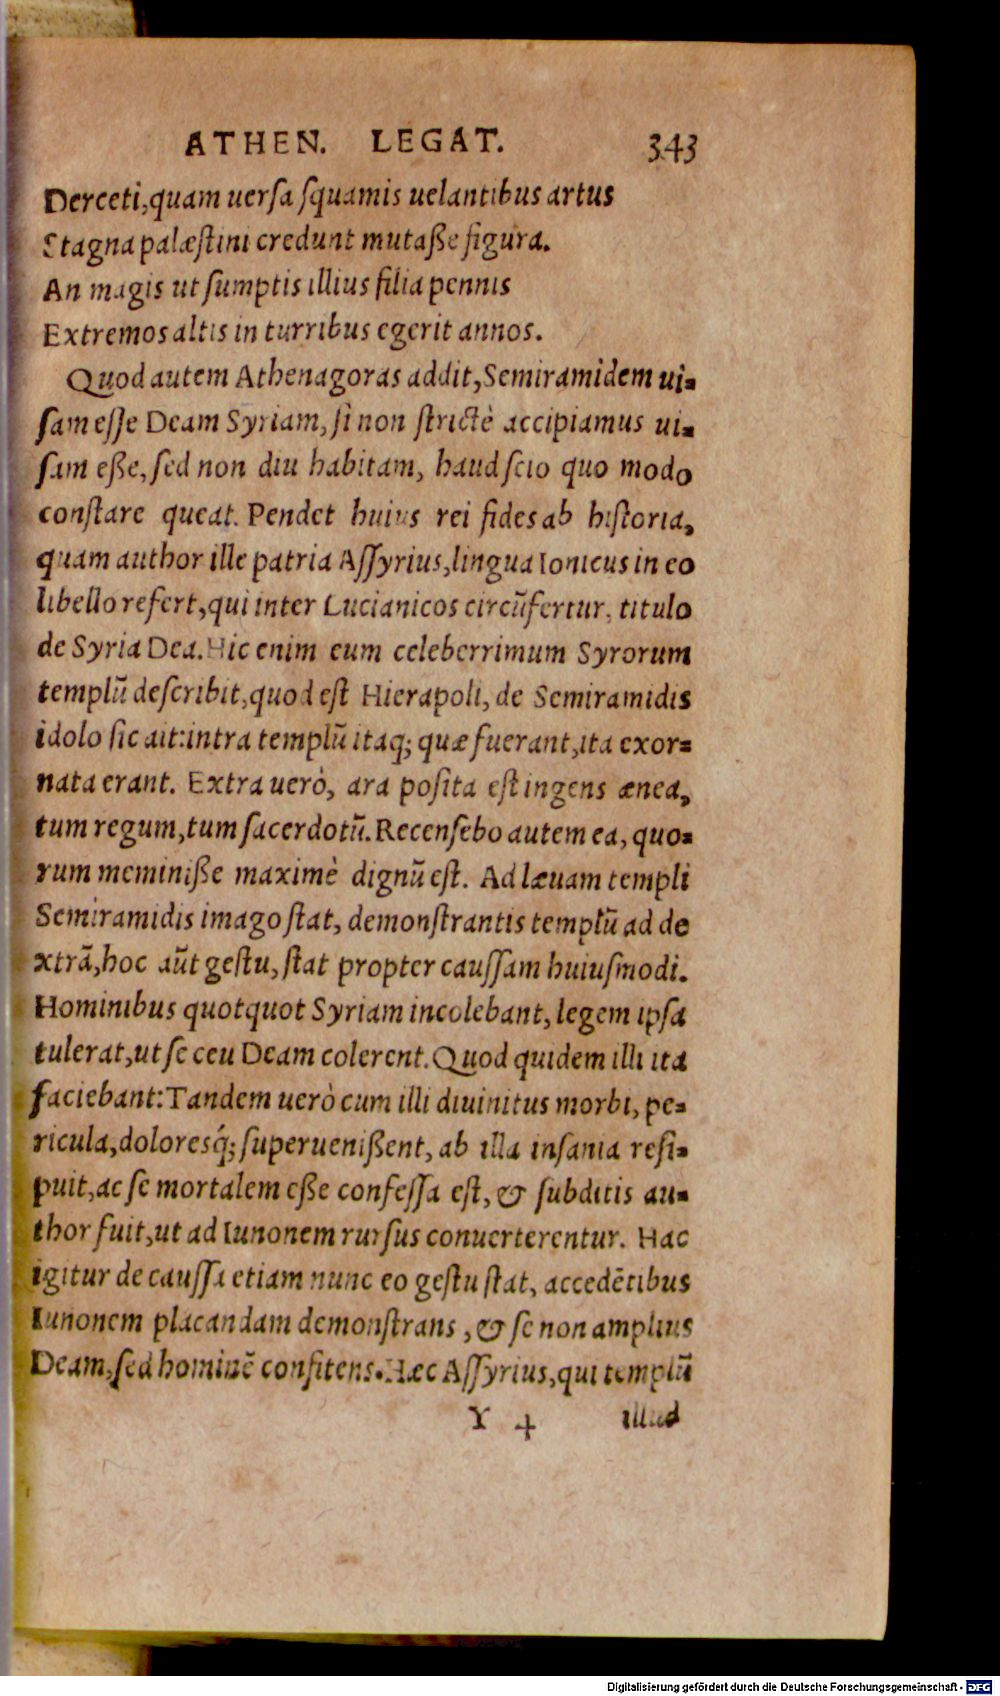 ATHEN. LEGAT. 343
Derceti,quam uerſa ſquamis uelantibus artus
Stagna palæſtini credunt mutaße figura.
An magis ut ſumptis illius filia pennis
Extremos altis in turribus egerit annos.
Quod autem Athenagoras addit,Semiramidem ui-
ſam eſſe Deam Syriam, ſi non ſtrictè accipiamus ui-
ſam eße, ſed non diu habitam, haud ſcio quo modo
conſtare queat. Pendet huius rei fides ab hiſtoria,
quam author ille patria Aſſyrius,lingua Ionicus in eo
libello refert,qui inter Lucianicos circũfertur, titulo
de Syria Dea. Hic enim cum celeberrimum Syrorum
templũ deſcribit,quod eſt Hierapoli, de Semiramidis
idolo ſic ait:intra templũ itaq; quæ fuerant,ita exor-
nata erant. Extra uerò, ara poſita eſt ingens ænea,
tum regum,tum ſacerdotũ. Recenſebo autem ea, quo-
rum meminiße maximè dignũ eſt. Ad læuam templi
Semiramidis imago ſtat, demonſtrantis templũ ad de
xtrã,hoc aũt geſtu, ſtat propter cauſſam huiuſmodi.
Hominibus quotquot Syriam incolebant, legem ipſa
tulerat,ut ſe ceu Deam colerent. Quod quidem illi ita
faciebant:Tandem uerò cum illi diuinitus morbi, pe-
ricula,doloresq́; ſuperuenißent, ab illa inſania reſi-
puit,ac ſe mortalem eße confeſſa eſt, & ſubditis au-
thor fuit,ut ad Iunonem rurſus conuerterentur. Hac
igitur de cauſſa etiam nunc eo geſtu ſtat, accedẽtibus
Iunonem placandam demonſtrans , & ſe non amplius
Deam,ſed hominẽ confitens. Hæc Aſſyrius,qui templũ
Y 4 illud
Digitalisierung gefördert durch die Deutsche Forschungsgemeinschaft - DFG